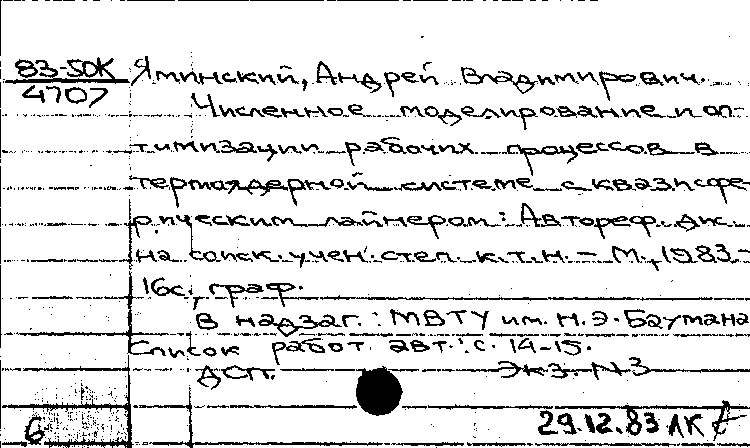 83-50К
4707
Яминский, Андрей Владимирович.
Численное моделирование и оп-
тимизации рабочих процессов в
термоядерной системе с квазисфе-
рическим лайнером: Автореф. дис.
на соиск. учен. степ. к.т.н. - М., 1983.-
16с., граф.
В надзаг.: МВТУ им. Н.Э. Баумана
Список работ авт.: с. 14-15.
ДСП. Экз. N3
6 29.12.83 ЛК